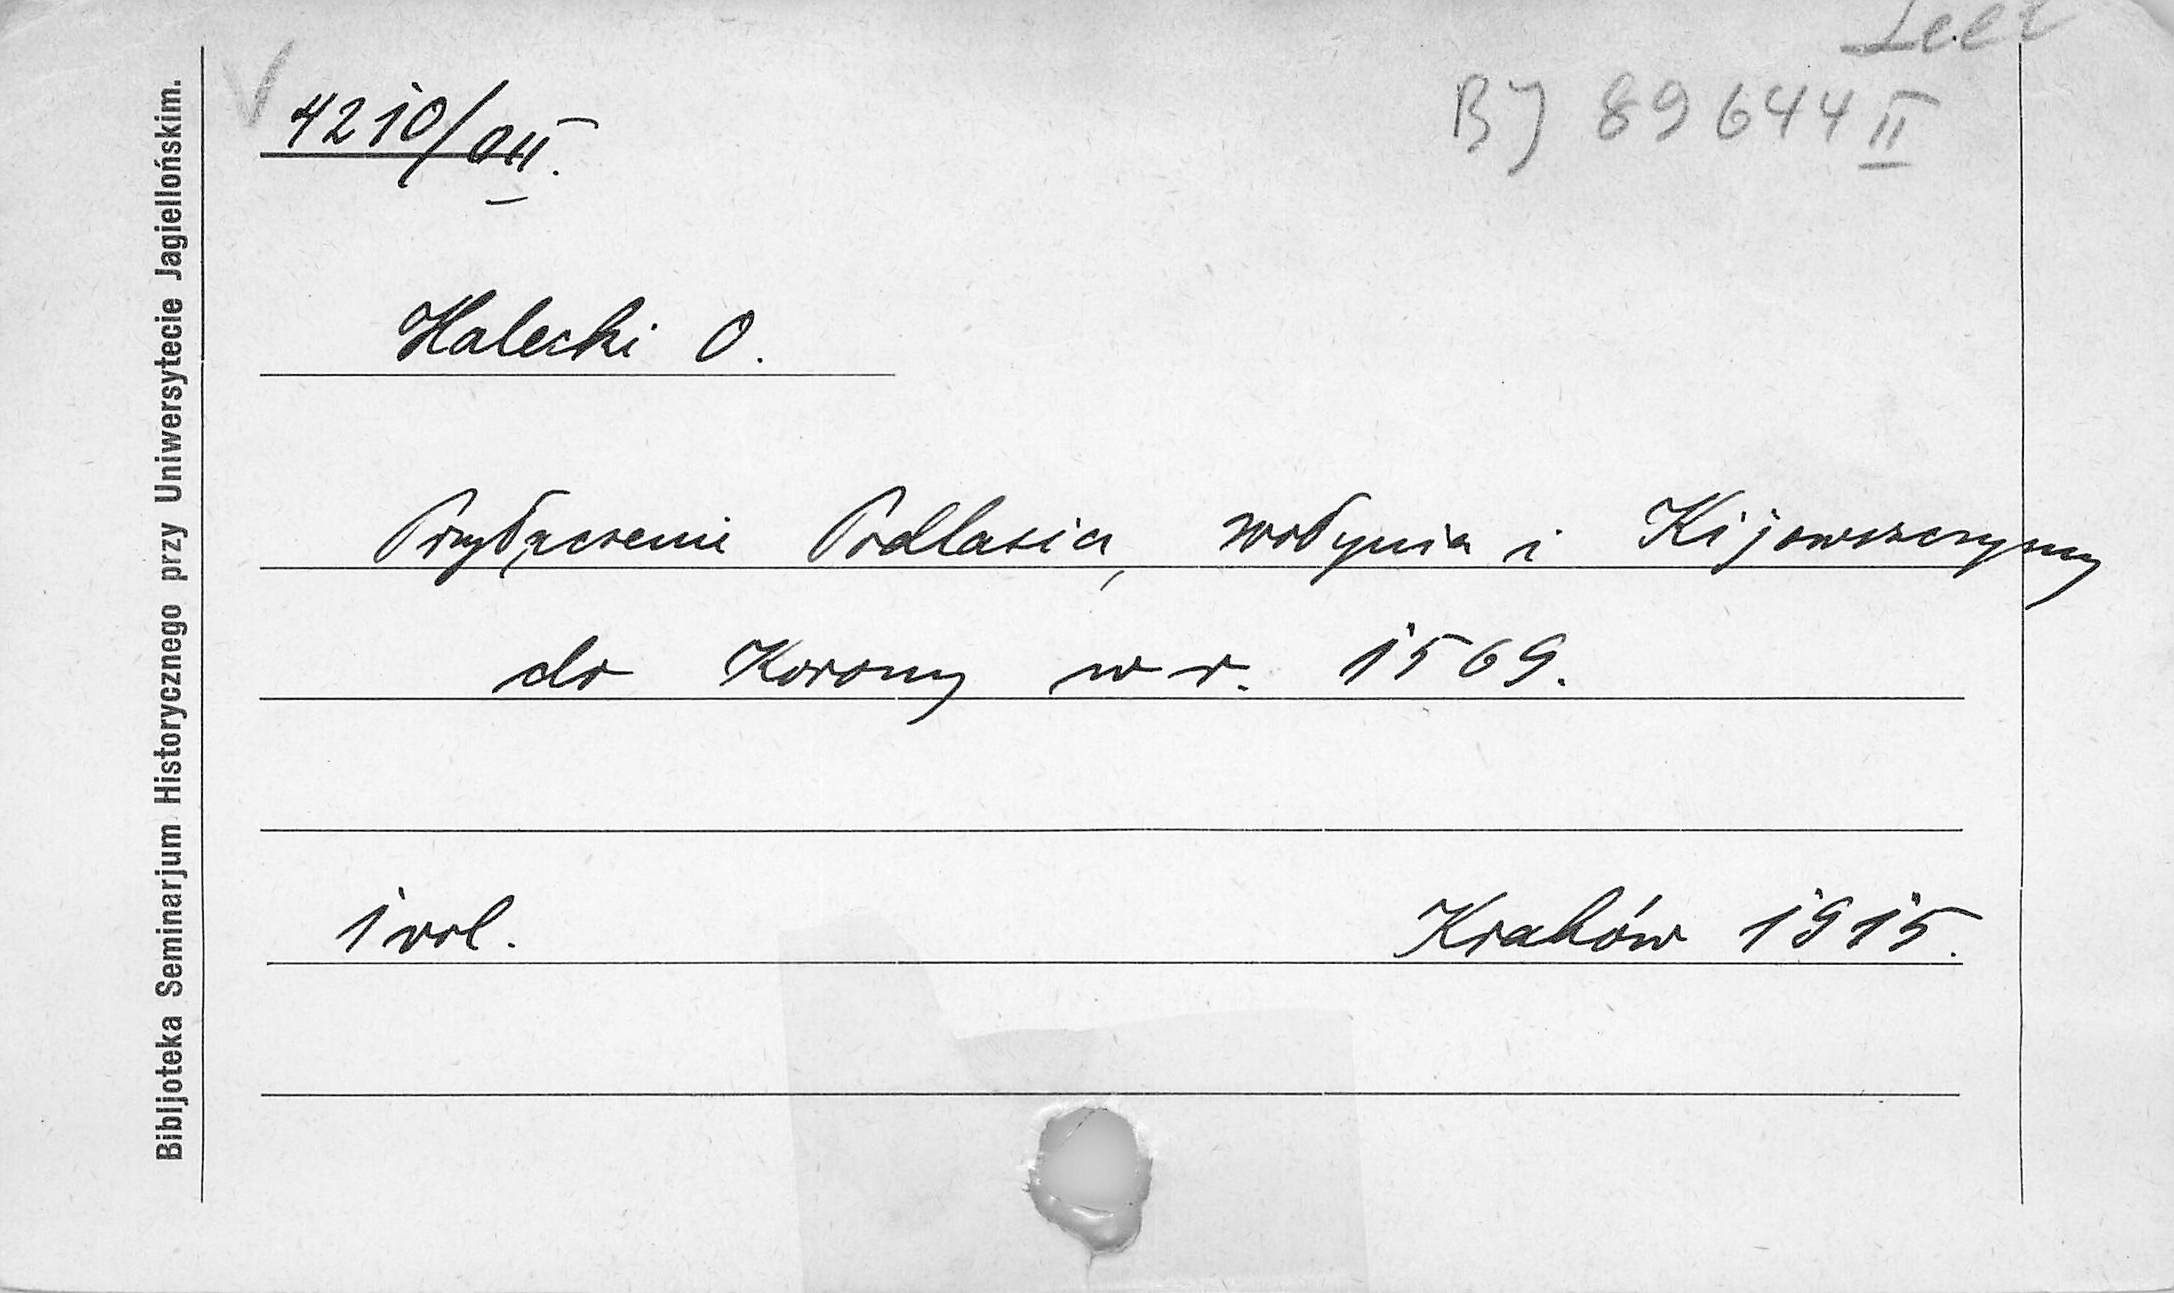 BJ 89644 II
4210/
Halecki O.
Przyłączenie Podlasia, Wołynia i Kijowszczyzny
do Korony w r. 1569.
1 vol. Kraków 1915.
Bibljoteka Seminarjum Historycznego przy Uniwersytecie Jagiellońskim.